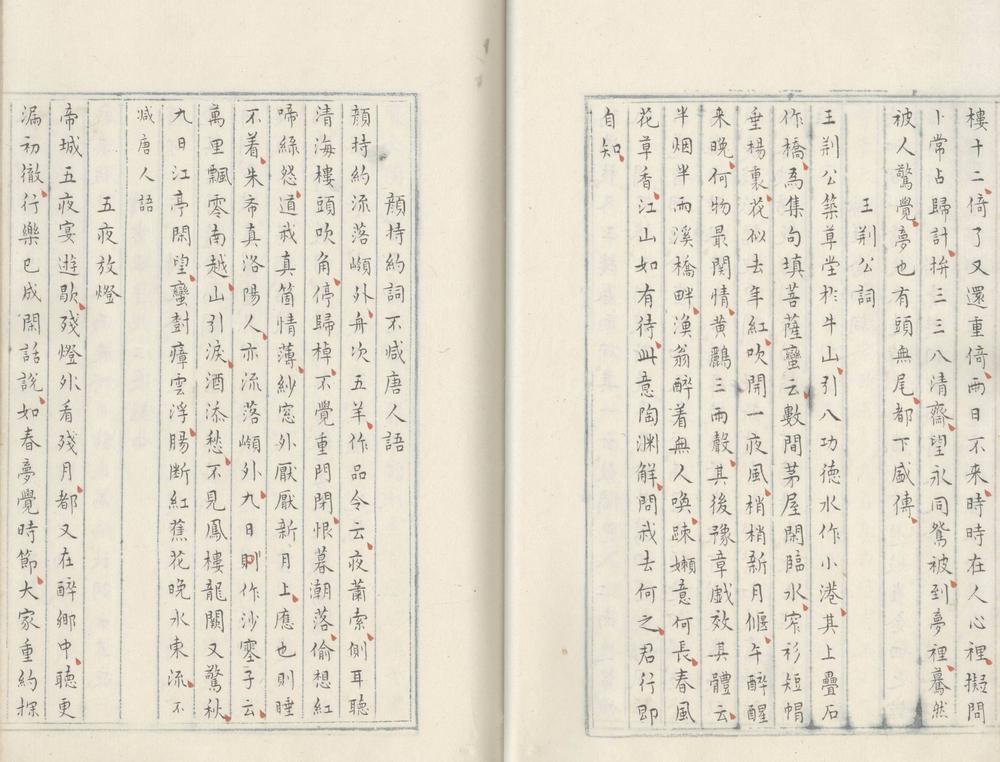 樓十二倚了又還重倚兩日不来時時在人心裡擬問
卜常占歸計拚三三八清齋望永同鴛被到夢裡驀然
被人驚覺夢也有頭無尾都下盛傳
王荆公詞
王荆公築草堂於半山引八功德水作小港其上疊石
作橋為集句填菩薩蠻云數間茅屋閑臨水窄衫短帽
垂楊裏花似去年紅吹開一夜風梢梢新月偃午醉醒
来晚何物最関情黄鸝三兩聲其後豫章戲效其體云
半烟半雨溪橋畔漁翁醉着無人喚踈嬾意何長春風
花草香江山如有待此意陶渊解問我去何之君行即
自知
顔持約詞不减唐人語
顔持約流落嶺外舟次五羊作品令云夜蕭索側耳聴
清海樓頭吹角停歸棹不覺重門閉恨暮潮落偷想紅
啼絲怨道我真箇情薄紗窓外厭厭新月上應也則睡
不着朱希真洛陽人亦流落嶺外九日則作沙塞子云
萬里飄零南越山引淚酒添愁不見鳳樓龍闕又驚秋
九日江亭閑望蠻樹瘴雲浮腸断紅蕉花晚水東流不
减唐人語
五夜放燈
帝城五夜宴遊歇殘燈外看殘月都又在醉鄉中聴更
漏初徹行樂已成閑話說如春夢覺時節大家重約探